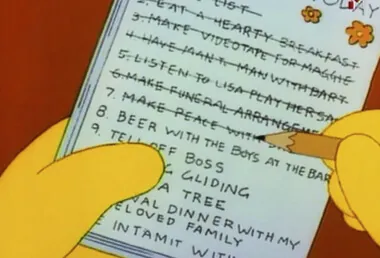 LIST
2. EAT A HEARTY BREAKFAST
3. MAKE VIDEOTAPE FOR MAGGIE
4. HAVE MAN T. MAN WITH BART
5. LISTEN TO LISA PLAY HER SAX
6. MAKE FUNERAL ARRANGEME
7. MAKE PEACE WITH
8. BEER WITH THE BOYS AT THE BAR
9. TELL OFF BOSS
G GLIDING
A TREE
VAL DINNER WITH MY
ELOVED FAMILY
INTAMIT WITH